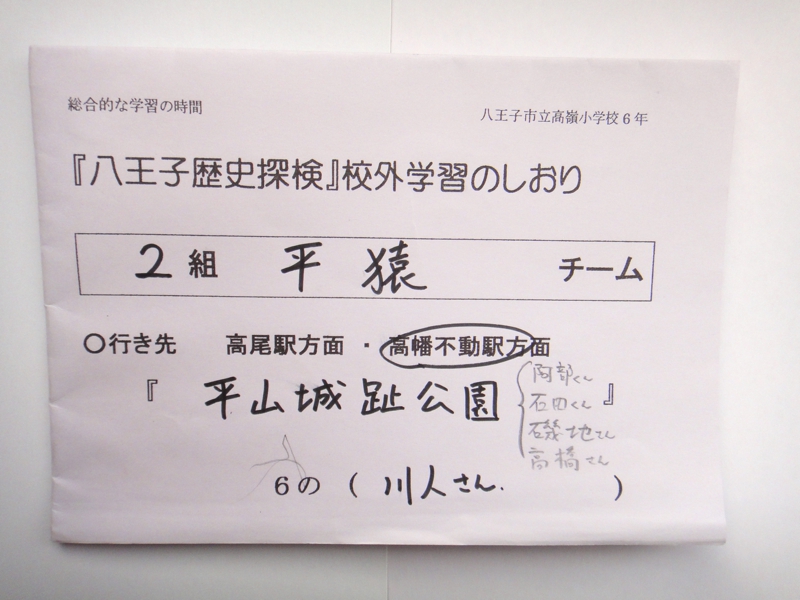 総合的な学習の時間
八王子市立高嶺小学校6年
『八王子歴史探検』校外学習のしおり
2組 平猿 チーム
○行き先 高尾駅方面 ・ 高幡不動駅方面
『 平山城趾公園 』
阿部くん
石田くん
磯地さん
高橋さん
6の ( 川人さん. )